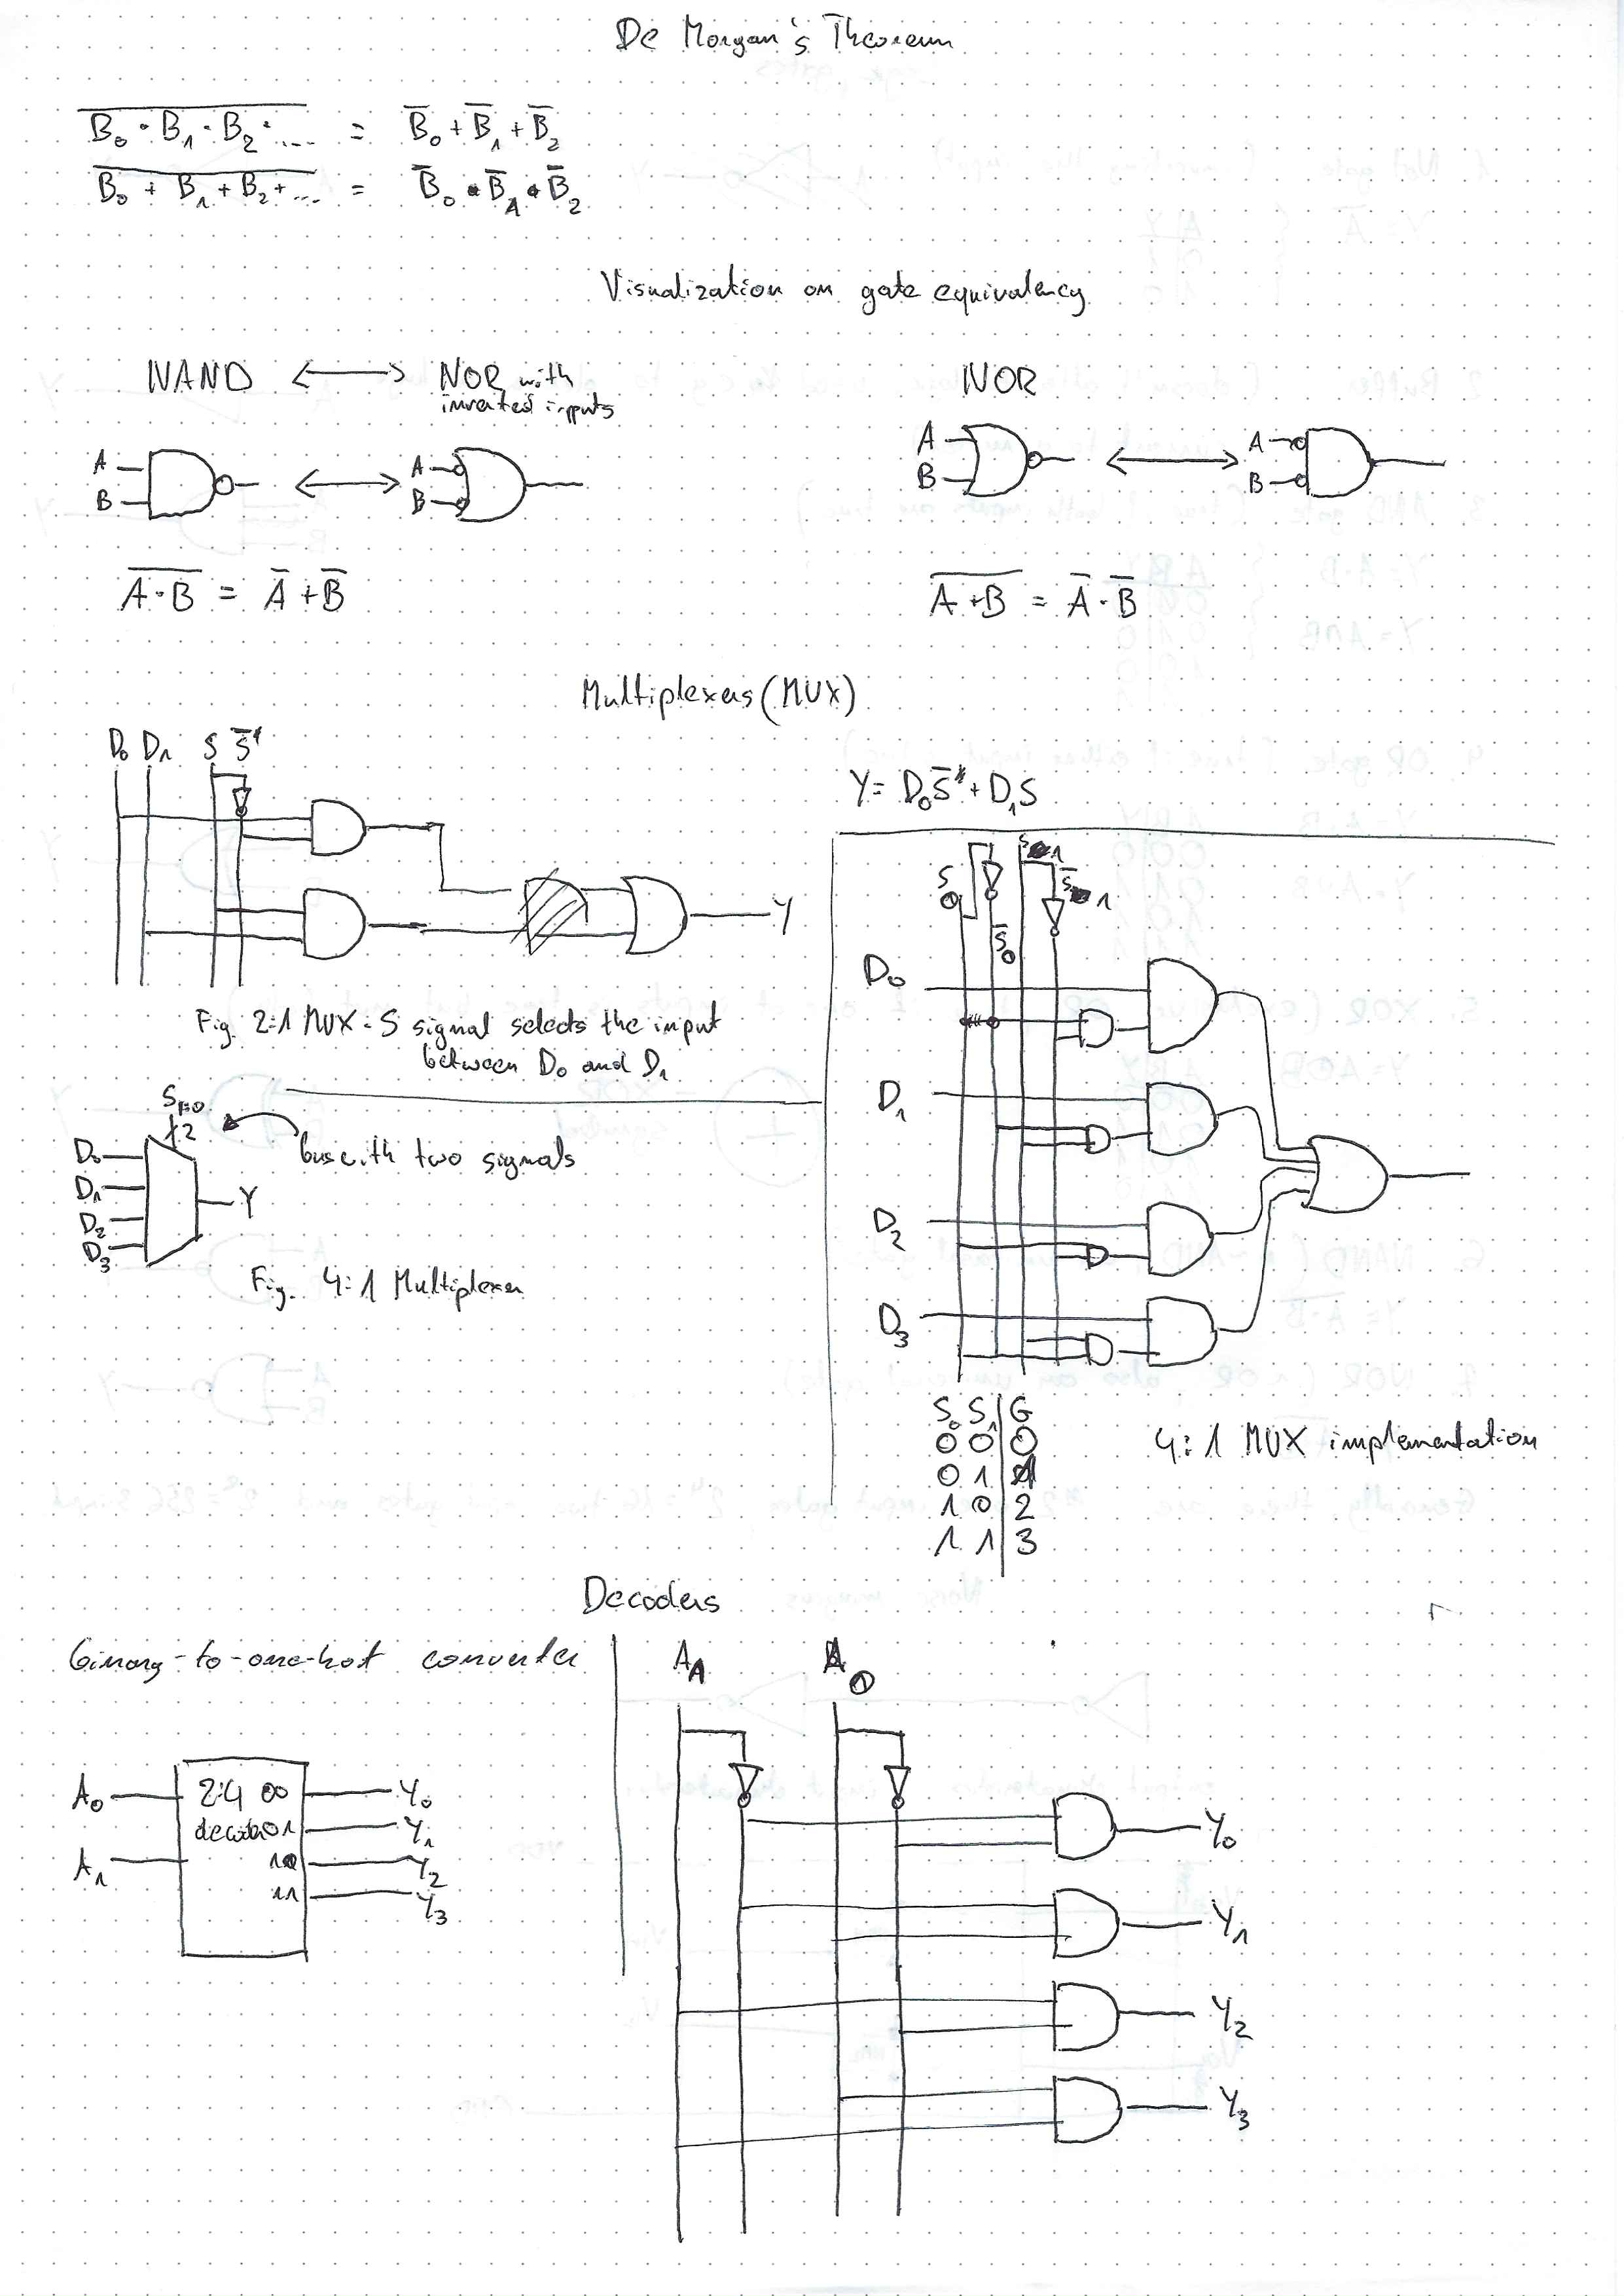 De Morgan's Theorem
B₀ · B₁ · B₂ · ... = B̅₀ + B̅₁ + B̅₂
B₀ + B₁ + B₂ + ... = B̅₀ · B̅₁ · B̅₂
Visualization on gate equivalency
NAND ⟷ NOR with
inverted inputs
NOR
A
B
A
B
A
B
A
B
A·B = A̅ + B̅
A+B = A̅ · B̅
Multiplexers (MUX)
D₀ D₁ S S̅
Y
Y = D₀S̅ + D₁S
Fig. 2:1 MUX - S signal selects the input
between D₀ and D₁
S₁:₀
2
bus with two signals
D₀
D₁
D₂
D₃
Y
Fig. 4:1 Multiplexer
S₀
S₁
S̅₁
S̅₀
D₀
D₁
D₂
D₃
S₀ S₁ G
0 0 0
0 1 1
1 0 2
1 1 3
4:1 MUX implementation
Decoders
binary-to-one-hot converter
A₀
A₁
2:4 00
decoder 01
10
11
Y₀
Y₁
Y₂
Y₃
A₁ A₀
Y₀
Y₁
Y₂
Y₃